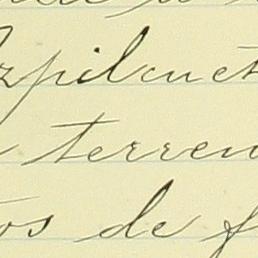 zpilcuet
terren
os de f